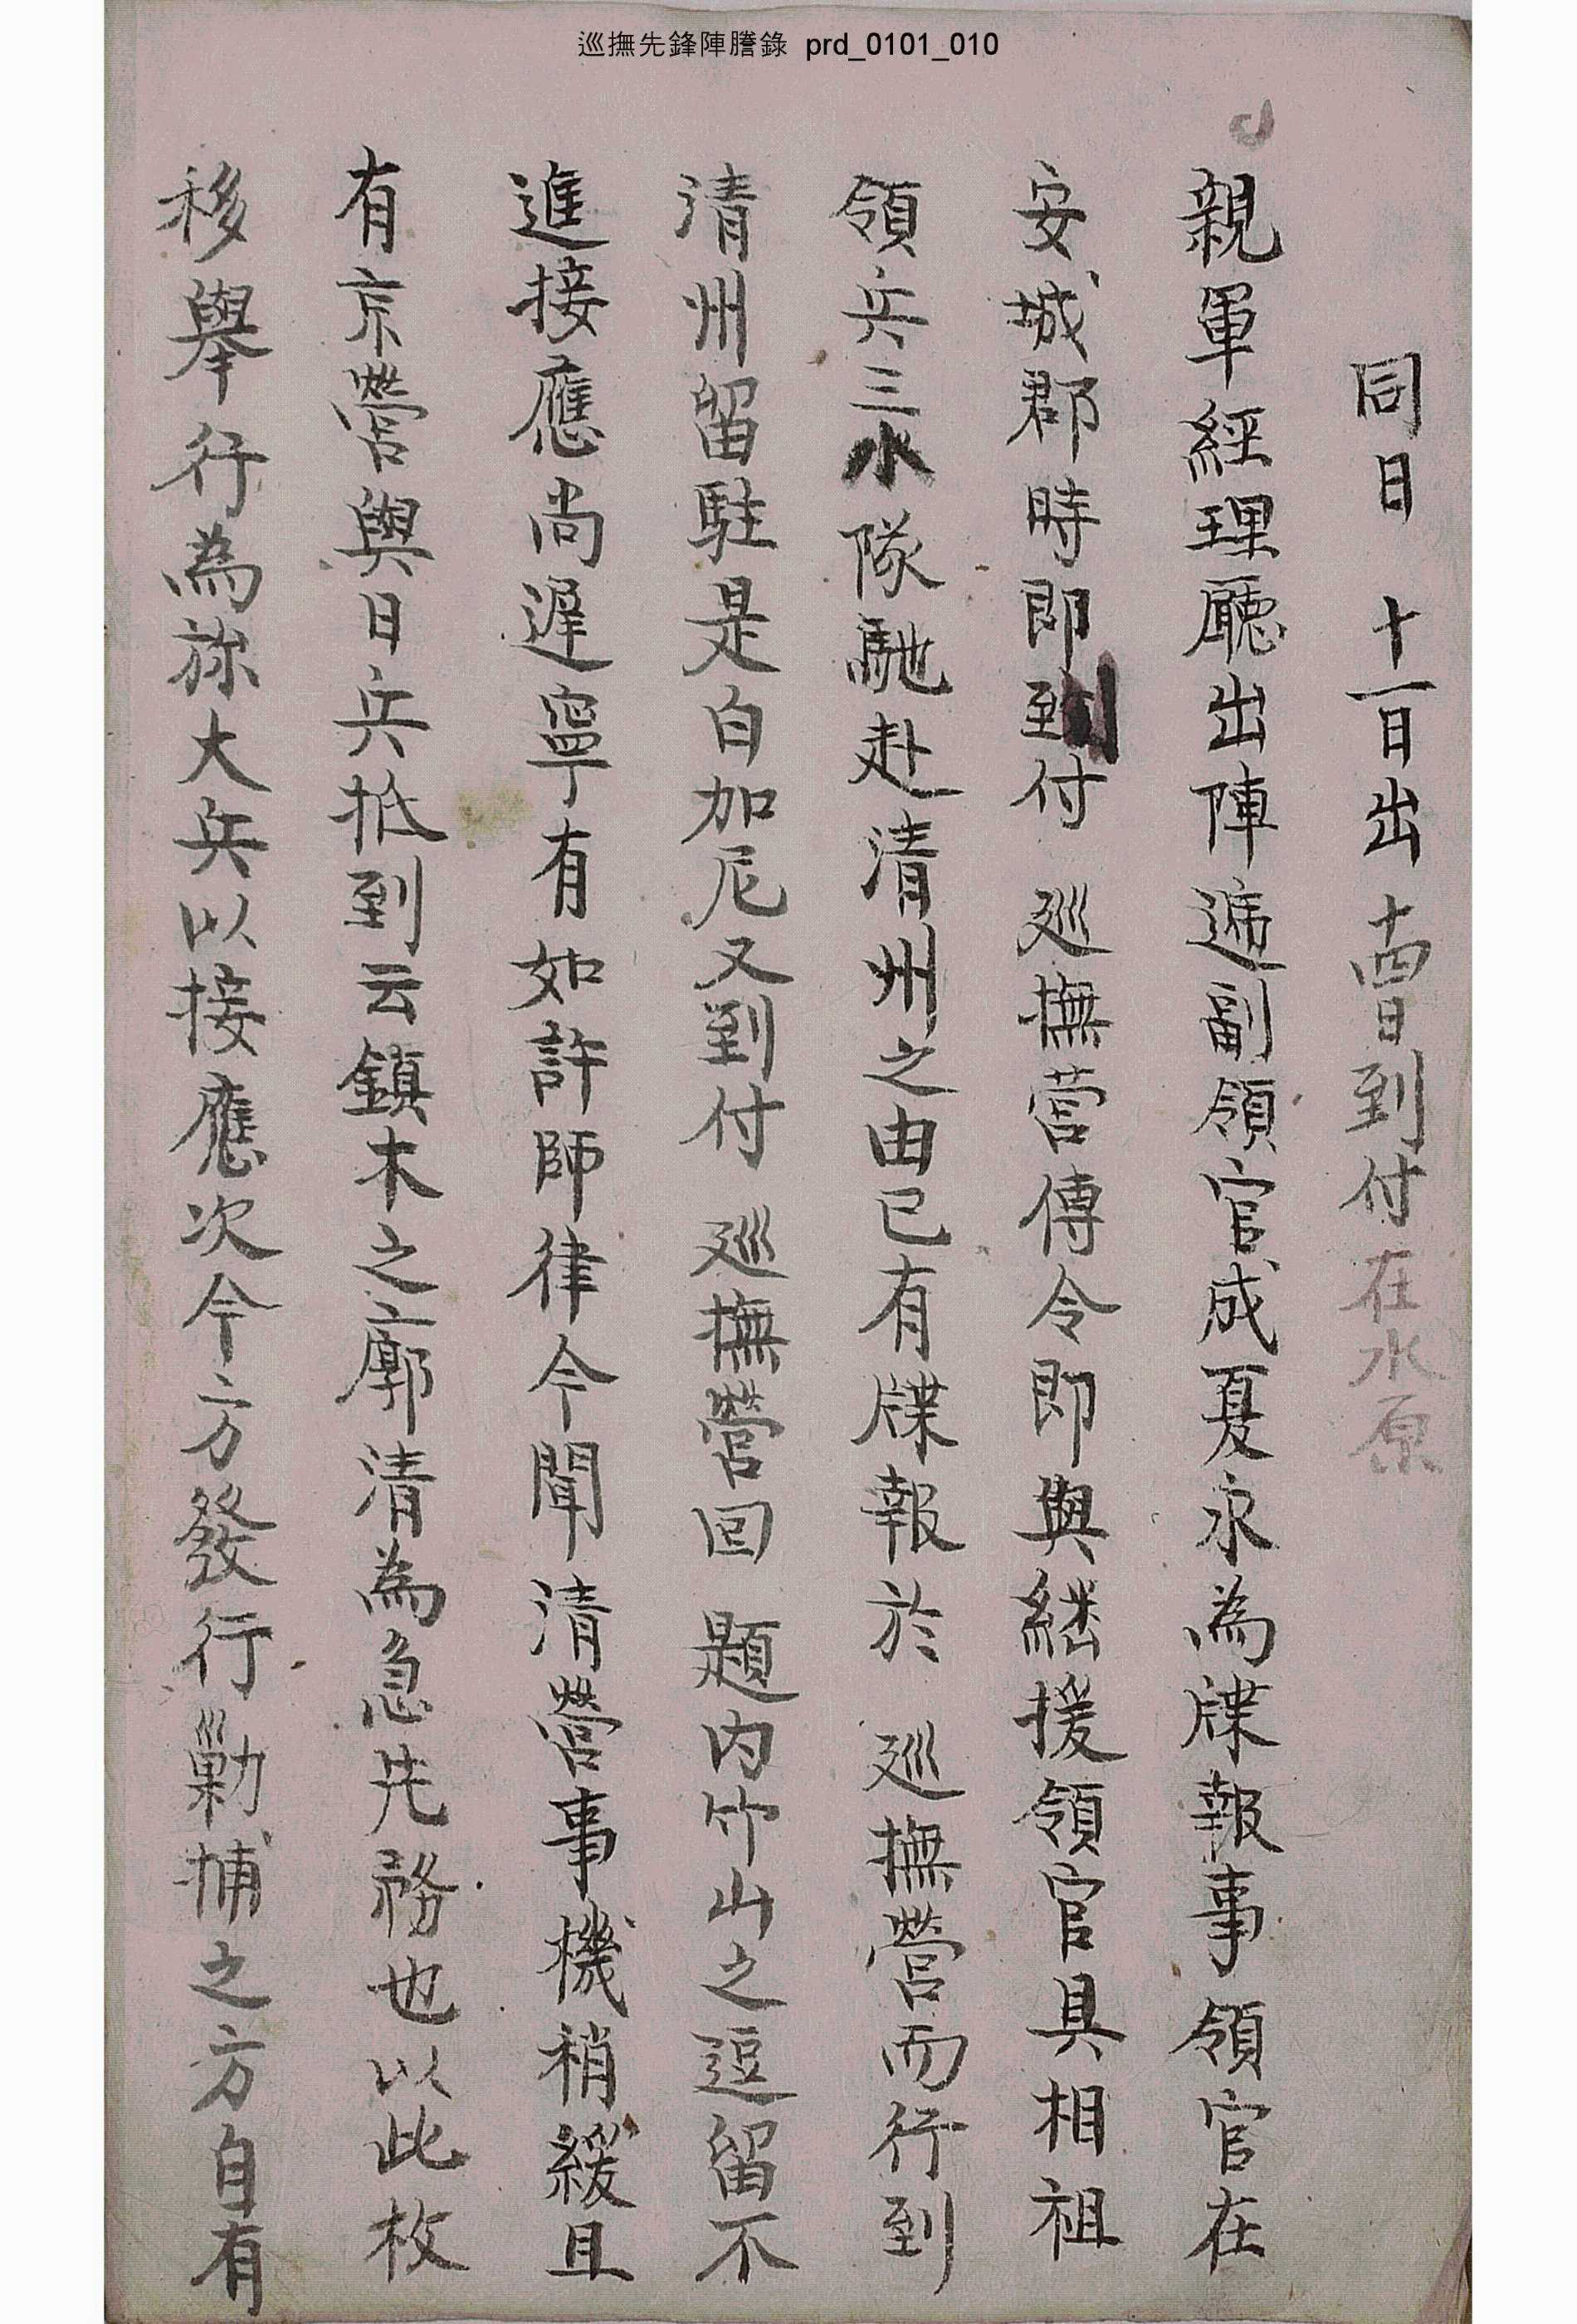 巡撫先鋒陣謄錄 prd_0101_010
同日 十一日出 十四日到付 在水原
親軍經理廳出陣逓副領官成夏永為牒報事領官在
安城郡時即到付 巡撫營傳令即與繼援領官具相祖
領兵三小隊馳赴清州之由已有牒報於 巡撫營而行到
清州留駐是白加尼又到付 巡撫營回 題內竹山之逗留不
進接應尚遲寧有如許師律今聞清營事機稍緩且
有京營與日兵抵到云鎮木之廓清為急先務也以此枚
移擧行為旀大兵以接應次今方發行剿捕之方自有